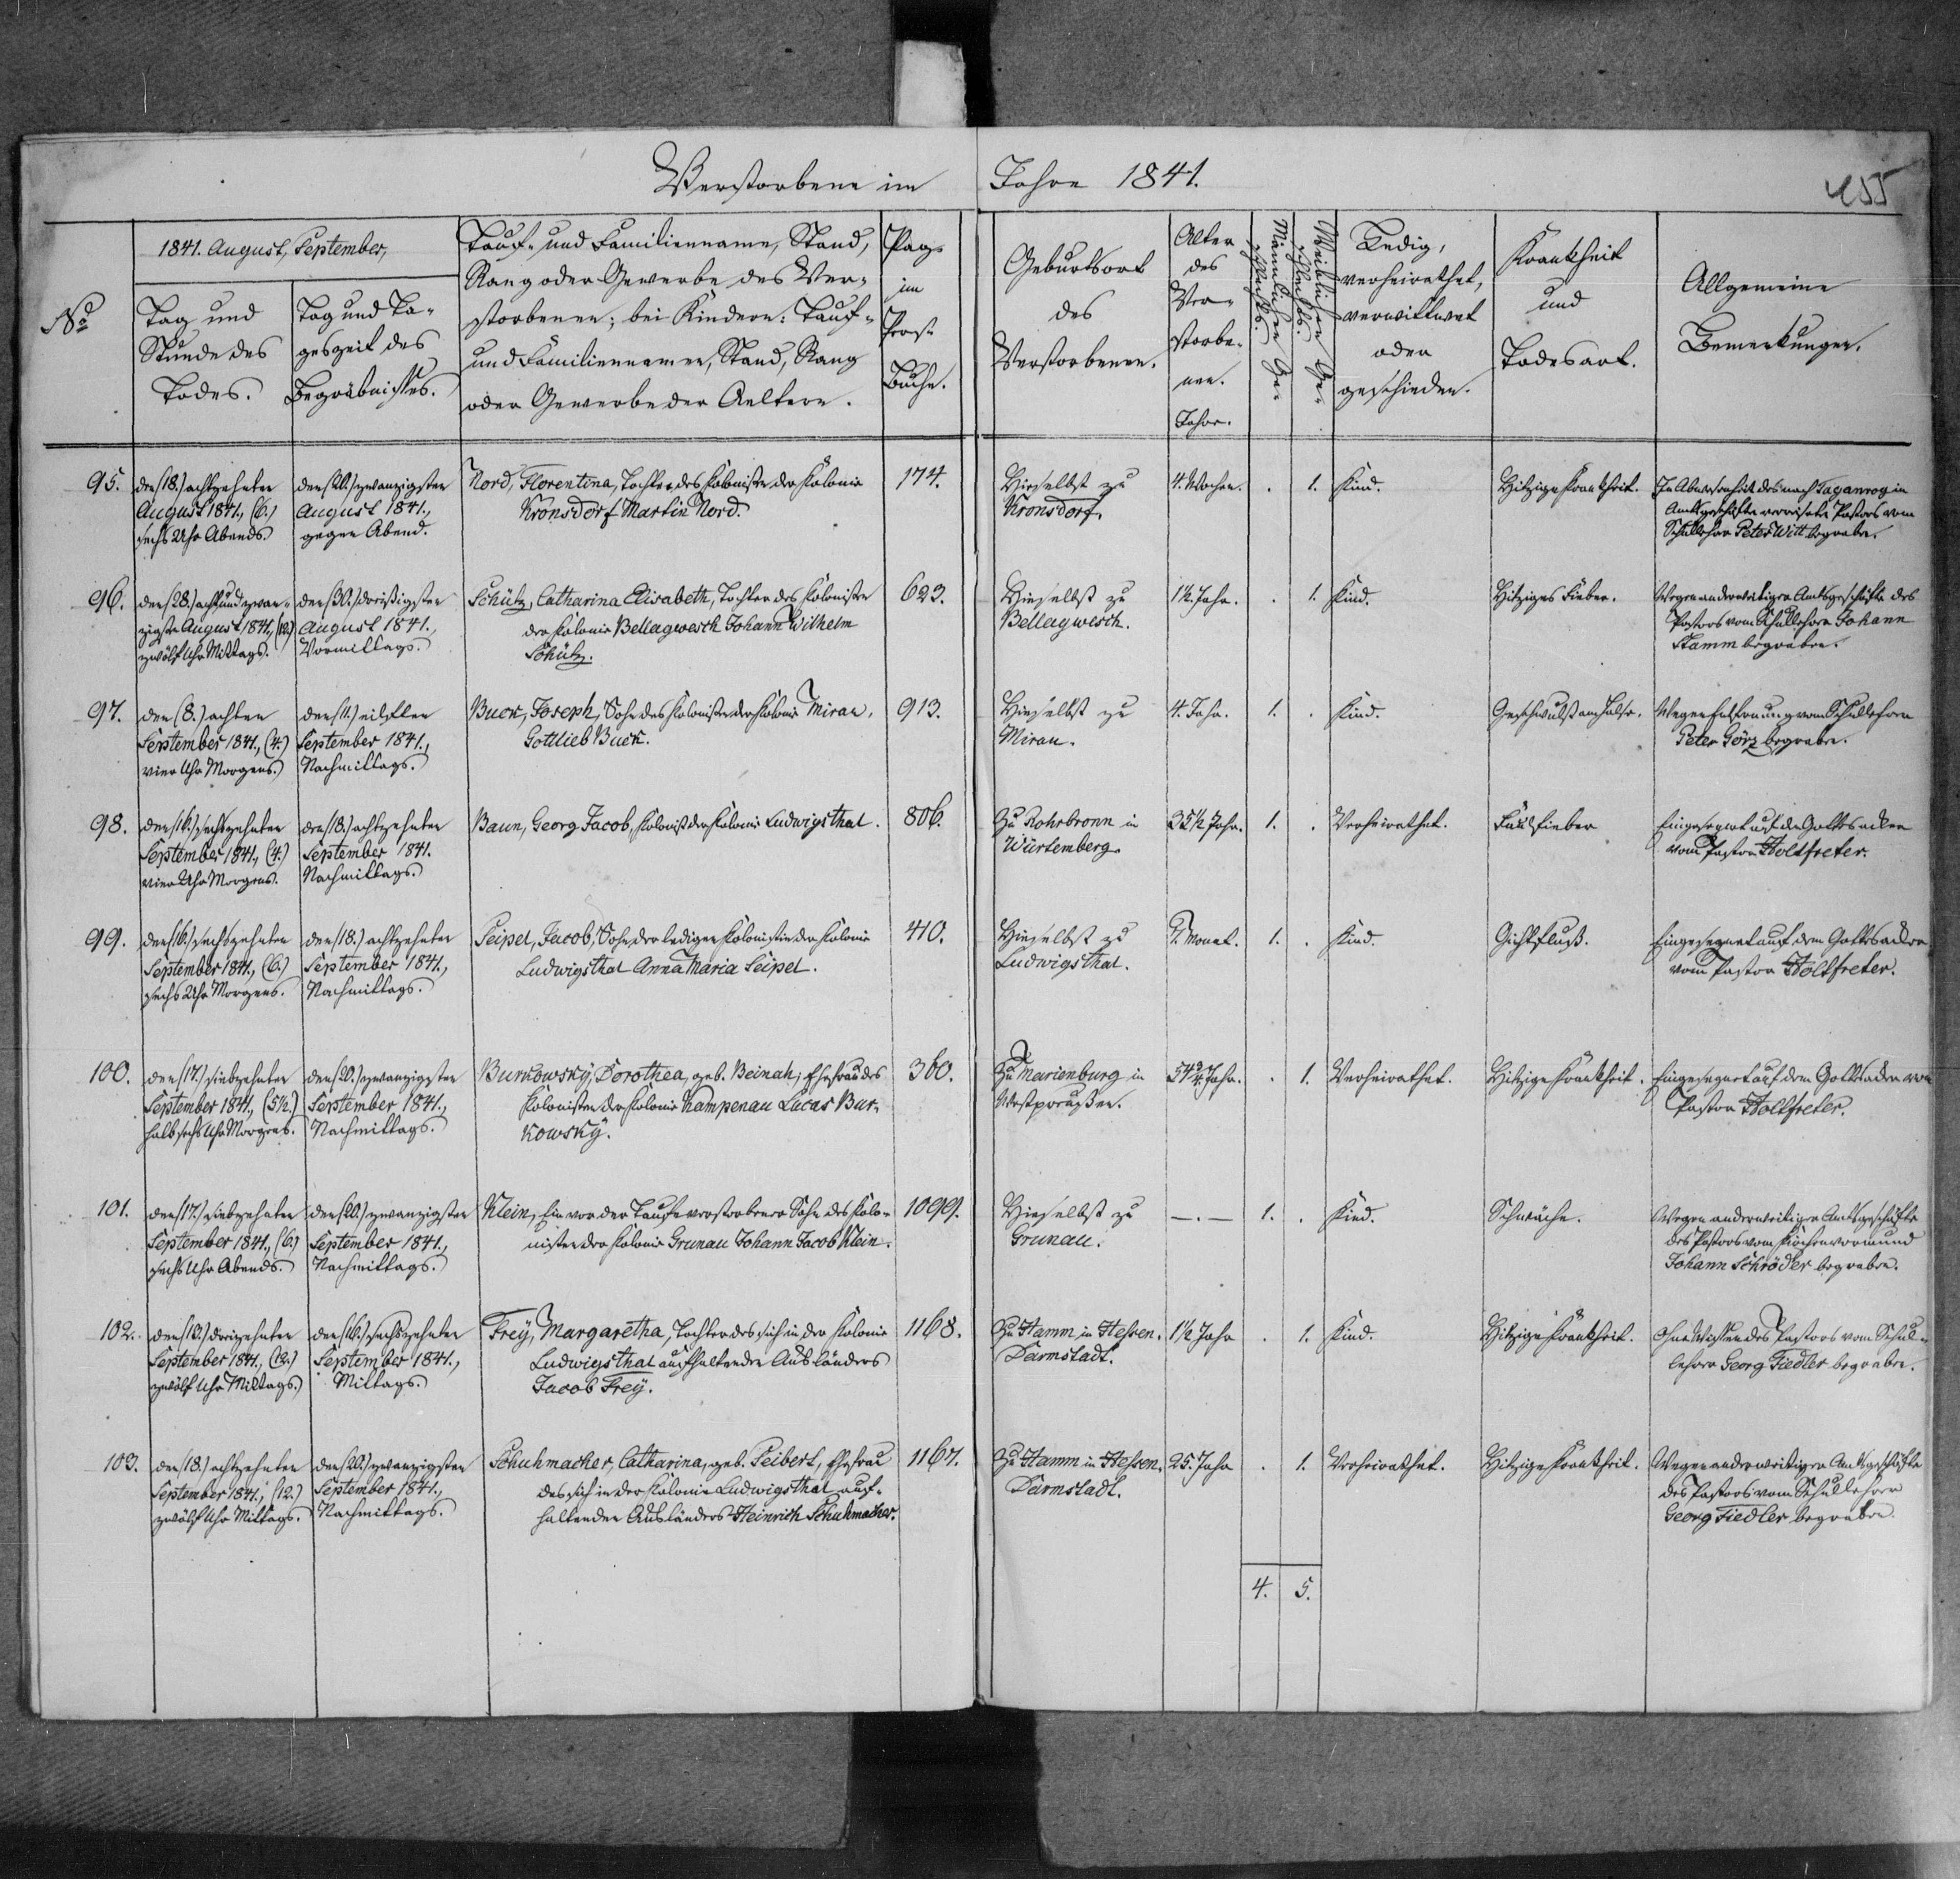 Verstorbene im Jahre 1841.
455
No
1841. August, September,
Tag und
Stunde des
Todes.
Tag und Ta-
geszeit des
Begräbnisses.
Tauf- und Familienname, Stand,
Rang oder Gewerbe des Ver-
storbenen; bei Kindern: Tauf-
und Familiennamen, Stand, Rang
oder Gewerbe der Aeltern.
Pag.
im
Pers.
Buche.
Geburtsort
des
Verstorbenen.
Alter
des
Ver-
storbe-
nen.
Jahre.
Männlichen Ge-
schlechts.
Weiblichen Ge-
schlechts.
Ledig,
verheirathet,
verwittwet
oder
geschieden.
Krankheit
und
Todesart.
Allgemeine
Bemerkungen.
95.
den (18.) achtzehnten
August 1841., (6.)
sechs Uhr Abends.
den (20.) zwanzigsten
August 1841.,
gegen Abend.
Nord, Florentina, Tochter des Kolonisten der Kolonie
Kronsdorf Martin Nord.
174.
Hieselbst zu
Kronsdorf.
4. Wochen.
.
1.
Kind.
Hitzige Krankheit.
In Abwesenheit des nach Taganrog in
Amtsgeschäften verreisten Pastors vom
Schullehrer Peter Witt begraben.
96.
den (28.) achtundzwan-
zigsten August 1841., (12.)
zwölf Uhr Mittags.
den (30.) dreißigsten
August 1841.,
Vormittags.
Schütz, Catharina Elisabeth, Tochter des Kolonisten
der Kolonie Bellagwesch Johann Wilhelm
Schütz.
623.
Hieselbst zu
Bellagwesch.
1½ Jahr.
.
1.
Kind.
Hitziges Fieber.
Wegen anderweitiger Amtsgeschäfte des
Pastors vom Schullehrer Johann
Stamm begraben.
97.
den (8.) achten
September 1841., (4.)
vier Uhr Morgens.
den (11.) eilften
September 1841.,
Nachmittags.
Buck, Joseph, Sohn des Kolonisten der Kolonie Mirau,
Gottlieb Buck.
913.
Hieselbst zu
Mirau.
4. Jahr.
1.
.
Kind.
Geschwulst am Halse.
Wegen Entfernung vom Schullehrer
Peter Görz begraben.
98.
den (16.) sechszehnten
September 1841., (4.)
vier Uhr Morgens.
den (18.) achtzehnten
September 1841.
Nachmittags.
Baun, Georg Jacob, Kolonist der Kolonie Ludwigsthal.
806.
Zu Rohrbronn in
Würtemberg.
35½ Jahr.
1.
.
Verheirathet.
Faulfieber
Eingesegnet auf dem Gottesacker
vom Pastor Holtfreter.
99.
den (16.) sechszehnten
September 1841., (6.)
sechs Uhr Morgens.
den (18.) achtzehnten
September 1841.,
Nachmittags.
Seipel, Jacob, Sohn der ledigen Kolonistin der Kolonie
Ludwigsthal Anna Maria Seipel.
410.
Hieselbst zu
Ludwigsthal.
Monat.
1.
.
Kind.
Gichtfluß.
Eingesegnet auf dem Gottesacker
vom Pastor Holtfreter.
100.
den (17.) siebzehnten
September 1841., (5½.)
halb sechs Uhr Morgens.
den (20.) zwanzigsten
September 1841.,
Nachmittags.
Burkowsky, Dorothea, geb. Beinah, Ehefrau des
Kolonisten der Kolonie Kampenau Lucas Bur-
kowsky.
360.
Zu Marienburg in
Westpreußen.
54¾ Jahr.
.
1.
Verheirathet.
Hitzige Krankheit.
Eingesegnet auf dem Gottesacker vom
Pastor Holtfreter.
101.
den (17.) siebzehnten
September 1841., (6.)
sechs Uhr Abends.
den (20.) zwanzigsten
September 1841.,
Nachmittags.
Klein, Ein vor der Taufe verstorbener Sohn des Kolo-
nisten der Kolonie Grunau Johann Jacob Klein.
1099.
Hieselbst zu
Grunau.
—.—
1.
.
Kind.
Schwäche.
Wegen anderweitiger Amtsgeschäfte
des Pastors vom Kirchenvormund
Johann Schröder begraben.
102.
den (13.) dreizehnten
September 1841., (12.)
zwölf Uhr Mittags.
den (16.) sechszehnten
September 1841.,
Mittags.
Frey, Margaretha, Tochter des sich in der Kolonie
Ludwigsthal aufhaltenden Ausländers
Jacob Frey.
1168.
Zu Hamm in Hessen-
Darmstadt.
1½ Jahr
.
1.
Kind.
Hitzige Krankheit.
Ohne Wissen des Pastors vom Schul-
lehrer Georg Fiedler begraben.
103.
den (18.) achtzehnten
September 1841., (12.)
zwölf Uhr Mittags.
den (20.) zwanzigsten
September 1841.,
Nachmittags.
Schuhmacher, Catharina, geb. Seibert, Ehefrau
des sich in der Kolonie Ludwigsthal auf-
haltenden Ausländers Heinrich Schuhmacher.
1167.
Zu Hamm in Hessen-
Darmstadt.
25. Jahr
.
1.
Verheirathet.
Hitzige Krankheit.
Wegen anderweitiger Amtsgeschäfte
des Pastors vom Schullehrer
Georg Fiedler begraben.
4.
5.